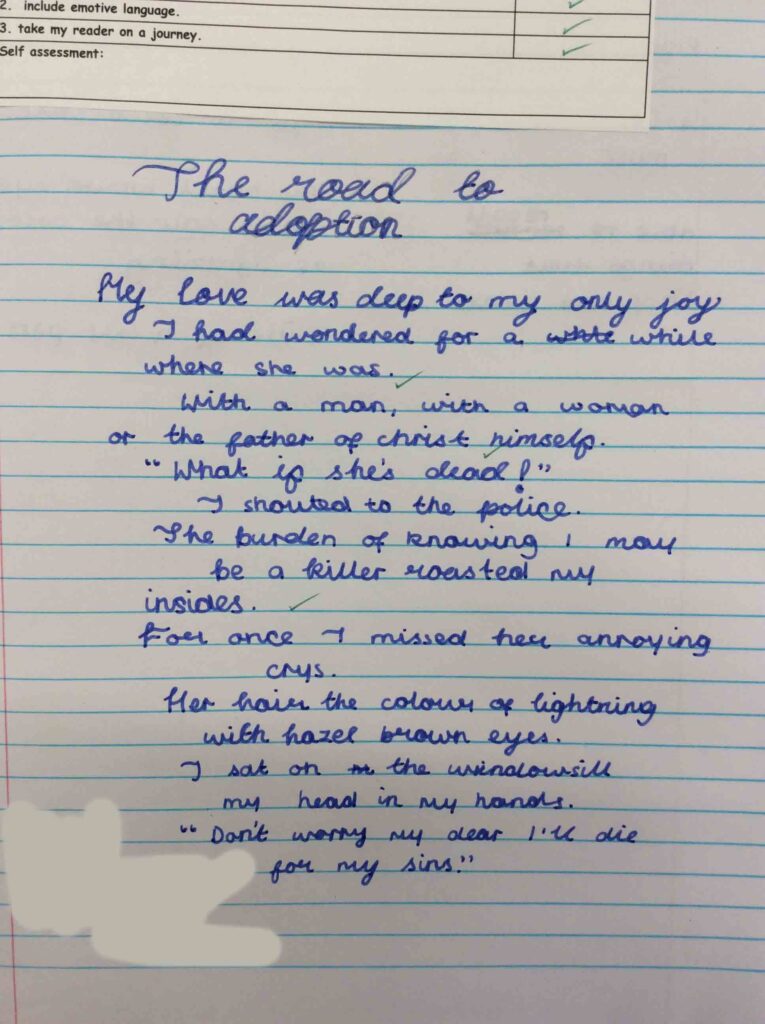 2. include emotive language.
3. take my reader on a journey.
Self assessment:
The road to
adoption
My love was deep to my only joy
I had wondered for a while
where she was.
With a man, with a woman
or the father of christ himself.
"What if she's dead!"
I shouted to the police.
The burden of knowing I may
be a killer roasted my
insides.
For once I missed her annoying
crys.
Her hair the colour of lightning
with hazel brown eyes.
I sat on the windowsill
my head in my hands.
"Don't worry my dear I'll die
for my sins."